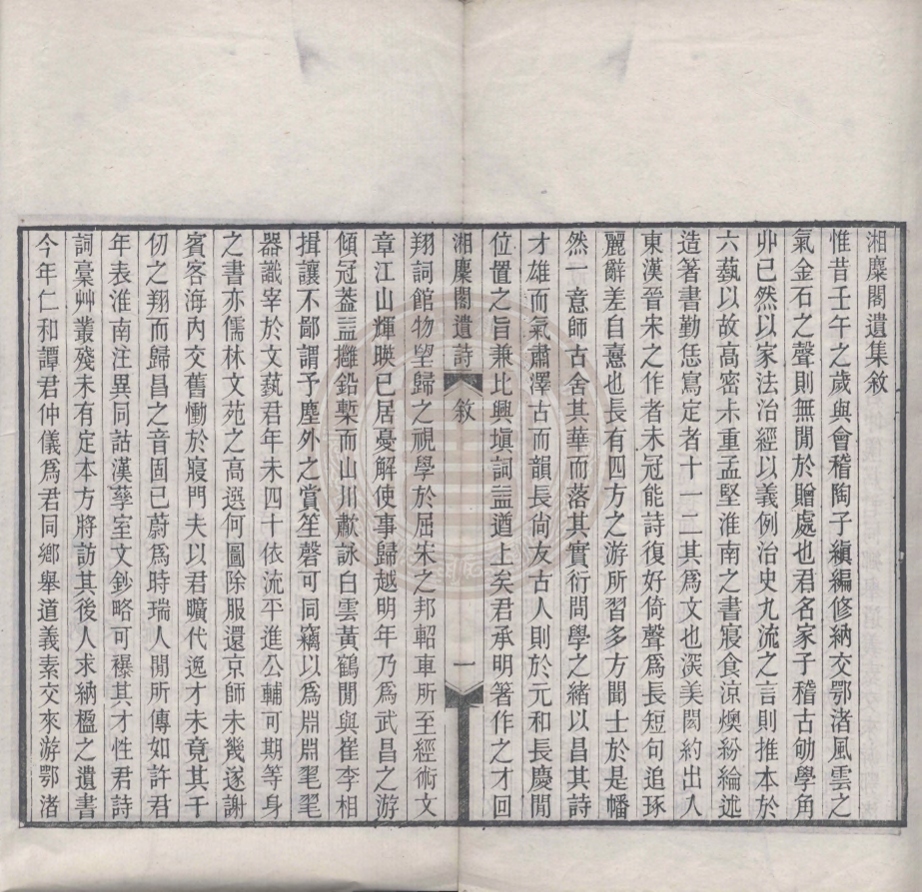 湘麋閣遺集敘
惟昔壬午之歲與會稽陶子縝編修納交鄂渚風雲之
氣金石之聲則無閒於贈處也君名家子稽古劬學角
丱已然以家法治經以義例治史九流之言則推本於
六藝以故高密未重孟堅淮南之書寢食涼燠紛綸述
造箸書勤恁寫定者十一二其爲文也深美閎約出入
東漢晉宋之作者未冠能詩復好倚聲爲長短句追琢
麗辭差自憙也長有四方之游所習多方聞士於是幡
然一意師古舍其華而落其實衍問學之緒以昌其詩
才雄而氣肅澤古而韻長尙友古人則於元和長慶閒
位置之旨兼比興塡詞益遒上矣君承明箸作之才回
湘麋閣遺詩 敘 一
翔詞館物望歸之視學於屈宋之邦軺車所至經術文
章江山輝暎已居憂解使事歸越明年乃爲武昌之游
傾冠蓋益擁鉛槧而山川獻詠白雲黃鶴閒與崔李相
揖讓不鄙謂予塵外之賞笙磬可同竊以爲淵淵毣毣
器識宰於文藝君年未四十依流平進公輔可期等身
之書亦儒林文苑之高選何圖除服還京師未幾遂謝
賓客海內交舊慟於寢門夫以君曠代逸才未竟其千
仞之翔而歸昌之音固已蔚爲時瑞人閒所傳如許君
年表淮南注異同詁漢孳室文鈔略可襮其才性君詩
詞稾艸叢殘未有定本方將訪其後人求納楹之遺書
今年仁和譚君仲儀爲君同鄉舉道義素交來游鄂渚